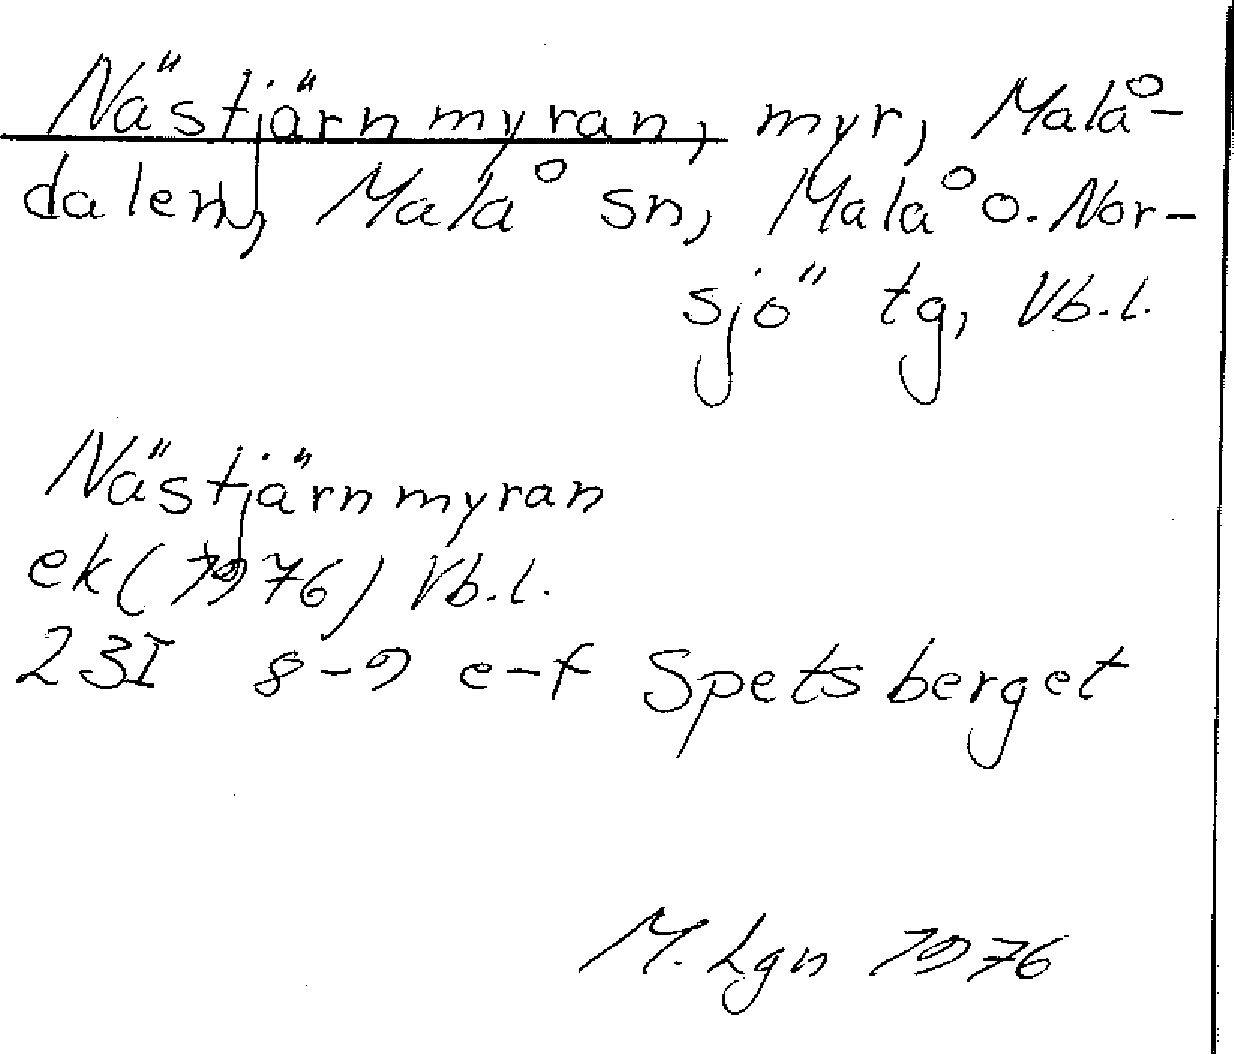 Nästjärnmyran, myr, Malå-
dalen, Malå sn, Malå o. Nor-
sjö tg, Vb.l.
Nästjärnmyran
ek (1976) Vb.l.
23I 8-9 e-f Spetsberget
M. Lgn 1976